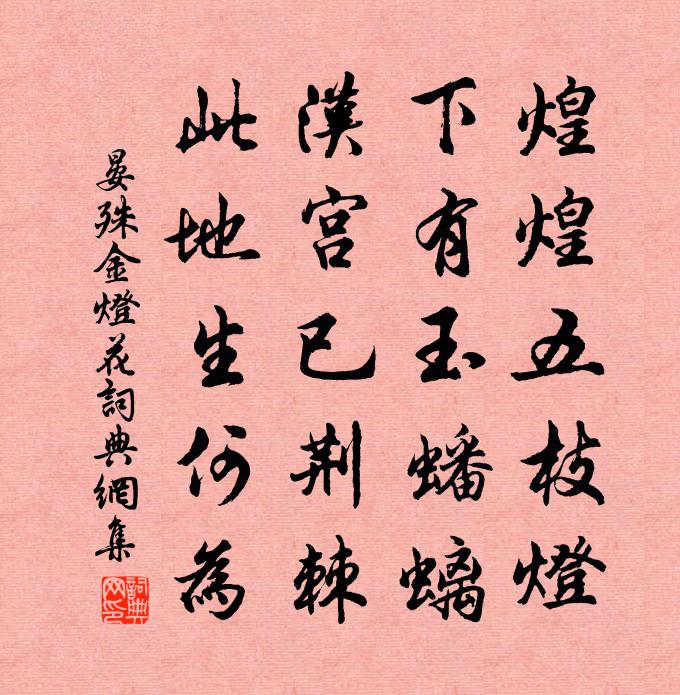 煌煌五枝燈
下有玉蟠螭
漢宮已荆棘
此地生何為
晏殊金燈花詞典網集
詞典網印